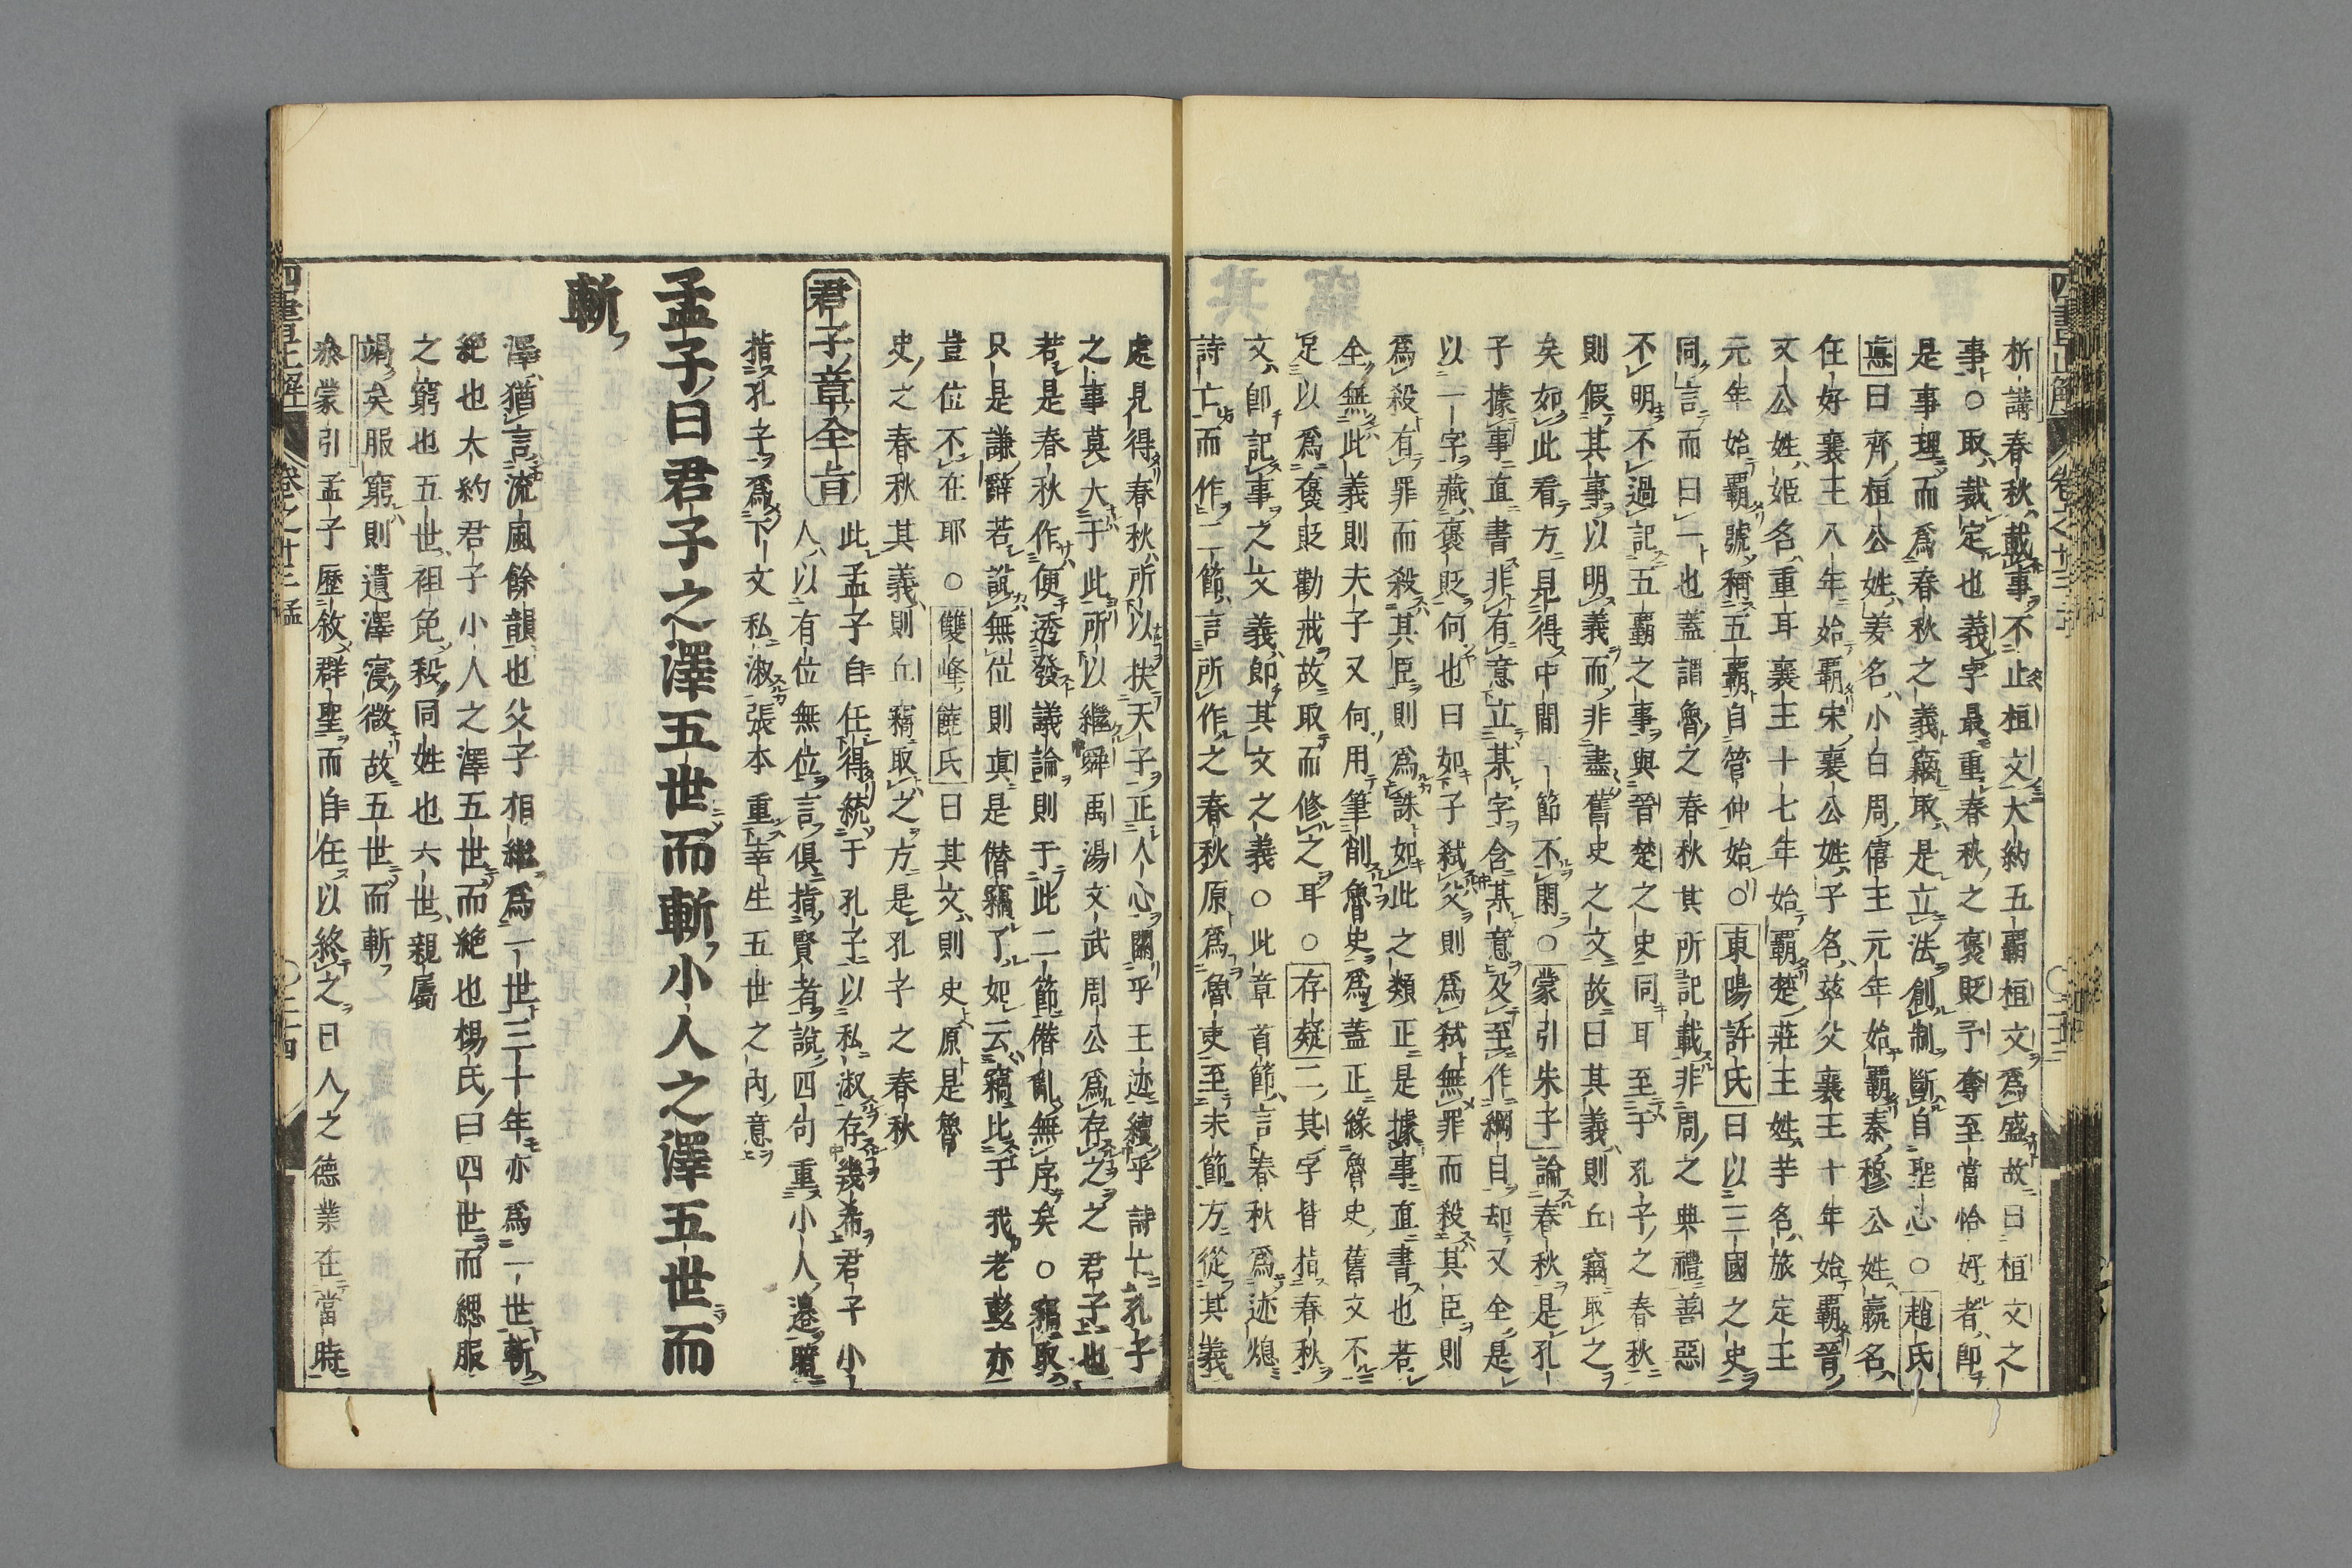 析講春秋載事不止桓文大約五覇桓文爲盛故曰桓文之
事○取裁定也義字最重春秋之褒貶予奪至當恰好者即
是事理而爲春秋之義竊取是立法創制斷自聖心○趙氏
悳曰齊桓公姓姜名小白周僖王元年始覇秦穆公姓嬴名
任好襄王八年始覇宋襄公姓子名兹父襄王十年始覇晉
文公姓姬名重耳襄王十七年始覇楚莊王姓芈名旅定王
元年始覇號稱五覇自管仲始○東陽許氏曰以三國之史
同言而曰一也蓋謂魯之春秋其所記載非周之典禮善惡
不明不過記五覇之事與晉楚之史同耳至于孔子之春秋
則假其事以明義而非盡舊史之文故曰其義則丘竊取之
矣如此看方見得中間一節不閑○蒙引朱子論春秋是孔
子據事直書非有意立某字含某意及至作綱目却又全是
以一字藏褒貶何也曰如子弑父則爲弑無罪而殺其臣則
爲殺有罪而殺其臣則爲誅如此之類正是據事直書也若
全無此義則夫子又何用筆削魯史爲蓋正緣魯史舊文不
足以爲褒貶勸戒故取而修之耳○存疑二其字皆指春秋
文即記事之文義即其文之義○此章首節言春秋爲迹熄
詩亡而作二節言所作之春秋原爲魯吏至末節方從其義
處見得春秋所以扶天子正人心關乎王迹續乎詩亡孔子
之事莫大于此所以繼舜禹湯文武周公爲存之之君子也
若是春秋作便透發議論則于此二節僭亂無序矣○竊取
只是謙辭若說無位則眞是僭竊了如云竊比于我老彭亦
豈位不在耶○雙峰饒氏曰其文則史原是魯
史之春秋其義則丘竊取之方是孔子之春秋
君子章全旨
此孟子自任得統于孔子以私淑存幾希君子小
人以有位無位言俱指賢者說四句重小人邊暗
指孔子爲下文私淑張本重幸生五世之內意
孟子曰君子之澤五世而斬小人之澤五世而
斬
澤猶言流風餘韻也父子相繼爲一世三十年亦爲一世斬
絶也大約君子小人之澤五世而絶也楊氏曰四世而緦服
之窮也五世袒免殺同姓也六世親屬
竭矣服窮則遺澤寖微故五世而斬
叅蒙引孟子歷敘群聖而自任以終之曰人之德業在當時